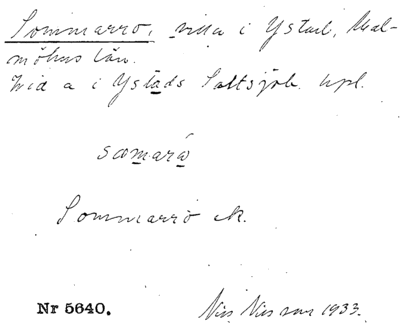 Sommarro, villa i Ystad, Mal-
möhus län.
Vid a i Ystads Saltsjöb. upl.
såmarå
Sommarro ck.
Nr 5640.
Nils Nilsson 1933.